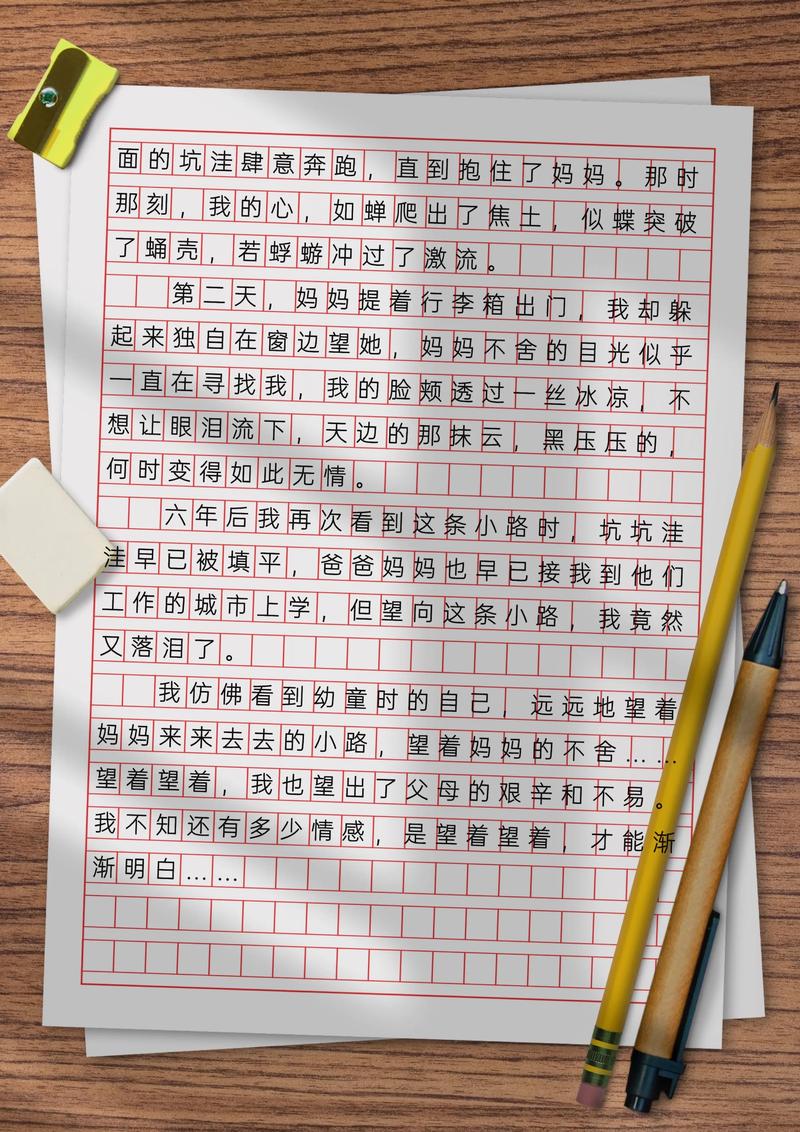 面的坑洼肆意奔跑，直到抱住了妈妈。那时
那刻，我的心，如蝉爬出了焦土，似蝶突破
了蛹壳，若蜉蝣冲过了激流。
第二天，妈妈提着行李箱出门，我却躲
起来独自在窗边望她，妈妈不舍的目光似乎
一直在寻找我，我的脸颊透过一丝冰凉，不
想让眼泪流下，天边的那抹云，黑压压的，
何时变得如此无情。
六年后我再次看到这条小路时，坑坑洼
洼早已被填平，爸爸妈妈也早已接我到他们
工作的城市上学，但望向这条小路，我竟然
又落泪了。
我仿佛看到幼童时的自己，远远地望着
妈妈来来去去的小路，望着妈妈的不舍……
望着望着，我也望出了父母的艰辛和不易。
我不知还有多少情感，是望着望着，才能渐
渐明白……